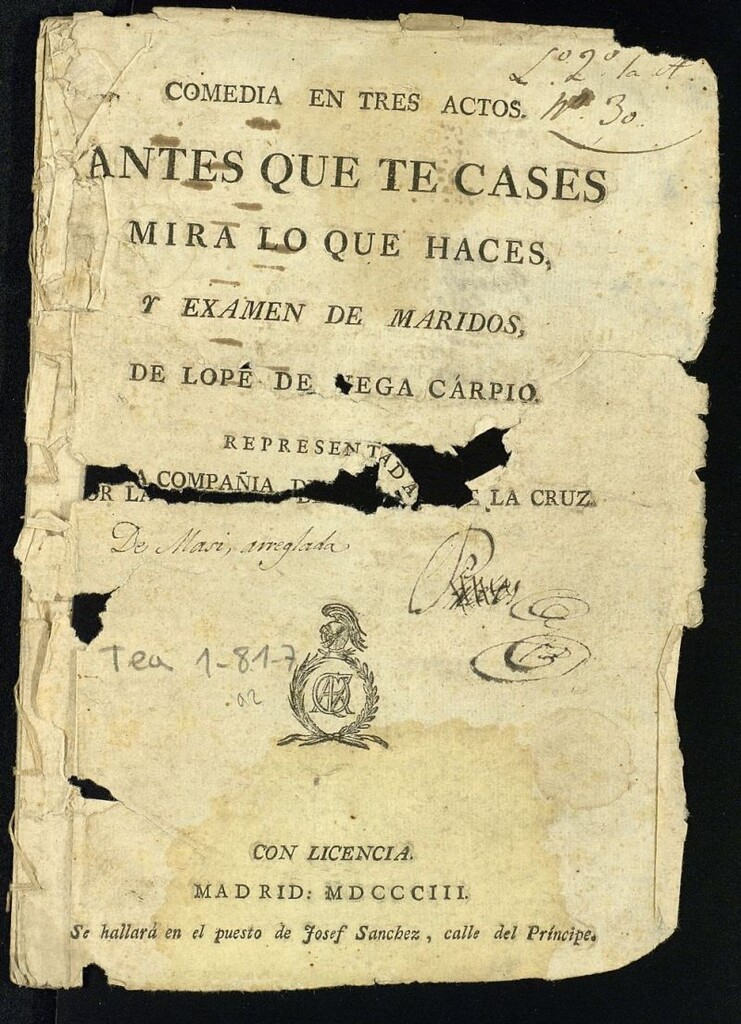 Lº. 2º. la at
Nº. 30.
COMEDIA EN TRES ACTOS.
ANTES QUE TE CASES
MIRA LO QUE HACES,
Y EXAMEN DE MARIDOS,
DE LOPE DE VEGA CÁRPIO.
REPRESENTADA
LA COMPAÑIA LA CRUZ
De Masi, arreglada
Tea 1-81-7
a2
CON LICENCIA.
MADRID: MDCCCIII.
Se hallará en el puesto de Josef Sanchez, calle del Príncipe.